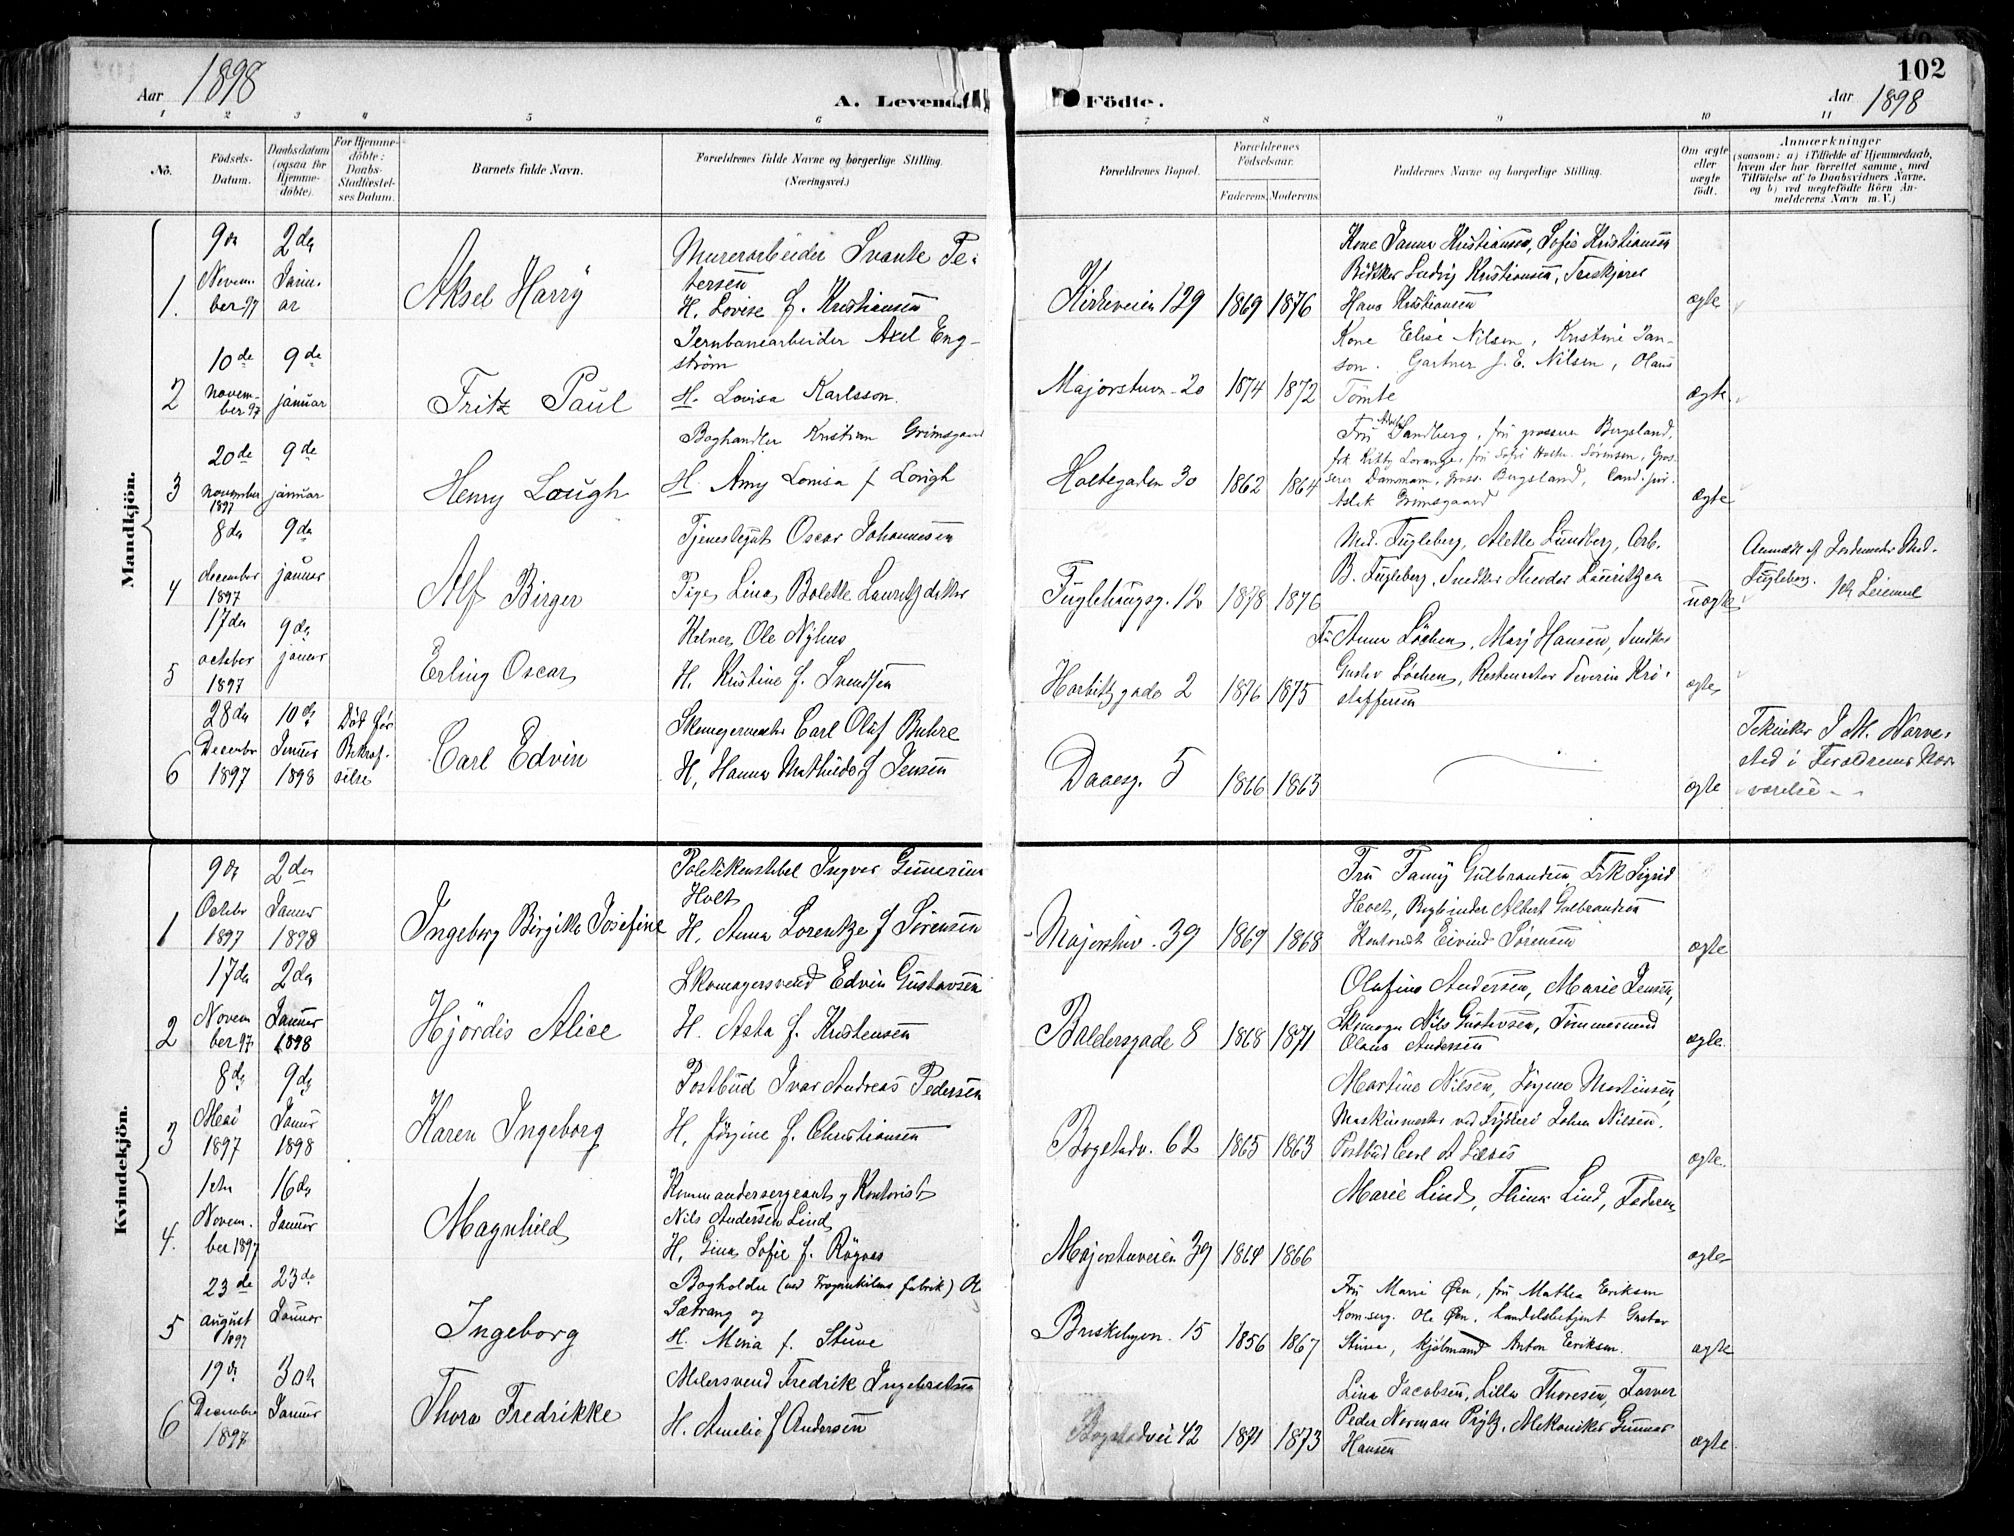 102
Aar 1898
A. Levende Födte.
Aar 1898
1 2 3 4 5 6 7 8 9 10 11
No.
Födsels-
Datum.
Daabsdatum
(ogsaa for
Hjemme-
døbte).
For Hjemme-
döbte:
Daabs-
Stadfæstel-
ses Datum.
Barnets fulde Navn.
Forældrenes fulde Navne og borgerlige Stilling.
(Næringsvei.)
Forældrenes Bopæl.
Forældrenes
Fødselsaar.
Faderens. Moderens.
Faddernes Navne og borgerlige Stilling.
Om ægte
eller
uægte
født.
Anmærkninger
(saasom: a) i Tilfælde af Hjemmedaab,
hvem der har forrettet samme, med
Tilføielse af to Daabsvidners Navne,
og b) ved uægtefødte Børn An-
melderens Navn m. V.)
Mandkjön.
1.
9de
Novem-
ber 97
2den
Janu-
ar
Aksel Harry
Murerarbeider Svante Pe-
tersen
H. Lovise f. Kristiansen
Kirkeveien 129
1869 1876
Kone Janna Kristiansen, Sofie Kristiansen
Bødker Ludvig Kristiansen, Træskjærer
Hans Kristiansen
ægte
2
10de
novem-
ber 97
9de
januar
Fritz Paul
Jernbanearbeider Axel Eng-
ström
H. Lovisa Karlsson.
Majorstuvn. 20
1874 1872
Kone Elise Nilsen, Kristine Jan-
son. Gartner J. E. Nilsen, Olaus
Tömte
ægte
3
20de
november
1897
9de
januar
Henry Lough
Boghandler Kristian Grimsgaard
H. Amy Lovisa f Lough
Holtegaden 30
1862 1864
Fru Sandberg, fru grosserer Bergsland,
frk Kitty Lorange, fru Sofie Holte Sörensen, Gros-
serer Dammam, Gross. Bergsland, Cand. jur.
Aslak Grimsgaard
ægte
4
8de
december
1897
9de
januar
Alf Birger
Tjenestegut Oscar Johannesen
Pige Lina Bolette Lauritzdatter
Fuglehaugsg. 12
1878 1876
Mad. Fugleberg, Alette Lundberg, Arb.
B. Fugleberg, Snedker Theodor Lauritzen
uægte
Anmeldt af Jordemoder Mad.
Fugleberg.
5
17de
october
1897
9de
januar
Erling Oscar
Kelner Ole Nyhus
H. Kristine f. Svendsen
Harbitzgade 2
1876 1875
Fru Anna Löchen, Mary Hansen, Snedker
Gustav Löchen, Restauratör Severin Kri-
stoffersen
ægte
6
28de
December
1897
10de
Januar
1898
Död før
Bekræf-
telse
Carl Edvin
Skomagermester Carl Oluf Buhre
H. Hanna Mathilde f Jensen
Daaesg. 5
1866 1863
ægte
Tekniker J. M. Narve-
sted i Forældrenes Nær-
værelse
Kvindekjön.
1
9de
Octobr
1897
2den
Januar
1898
Ingeborg Birgitte Josefine
Politikonstabel Ingvar Gunerius
Holt
H. Anna Lorentze f Sörensen
Majorstuv. 39
1869 1868
Fru Fanny Gulbrandsen, Frk Sigrid
Holt, Bogbinder Albert Gulbrandsen
Kontorist Eivind Sørensen
ægte
2
17de
Novem
ber 97
2den
Januar
1898
Hjördis Alice
Skomagersvend Edvin Gustavsen
H. Asta f. Kristensen
Baldersgade 8
1868 1871
Olufine Andersen, Marie Jensen,
Skomager Nils Gustavsen, Tömmermand
Olaus Andersen
ægte.
3
8de
Mai
1897
9de
Januar
1898
Karen Ingeborg
Postbud Ivar Andreas Pedersen
H. Jörgine f. Christiansen
Bogstadv. 62
1865 1863
Martine Nilsen, Jørgine Martinsen,
Maskinmester ved Fyrderi Johan Nilsen.
Postbud Carl A
ægte.
4.
Novem-
ber 1897
16de
Januar
Magnhild
Kommandersergeant og Kontorist
Nils Andersen Lind
H. Gina Sofie f. Røgnes
Majorstuveien 39
1864 1866
Marie Lind, Thina Lind, Faderen
ægte
5
23de
august
1897
23de
Januar
Ingeborg
Bogholder (ved Frognerkilens fabrik) Ole
Sætrang og
H. Mina f. Stuve
Briskebyvn. 15
1856 1867
Fru Marie Øen, fru Mathea Eriksen
Komserg. Ole Øen, handelsbetjent Gustav
Stuve, kjøbmand Anton Eriksen.
ægte
6
19de
Decembr
1897
30te
Januar
Thora Fredrikke
Malersvend Fredrik Ingebretsen
H. Amelie f Andersen
Bogstadvei 42
1871 1873
Lina Jacobsen, Lilla Thoresen, Farver
Peder Norman Prytz, Mekaniker Gunnar
Hansen
ægte